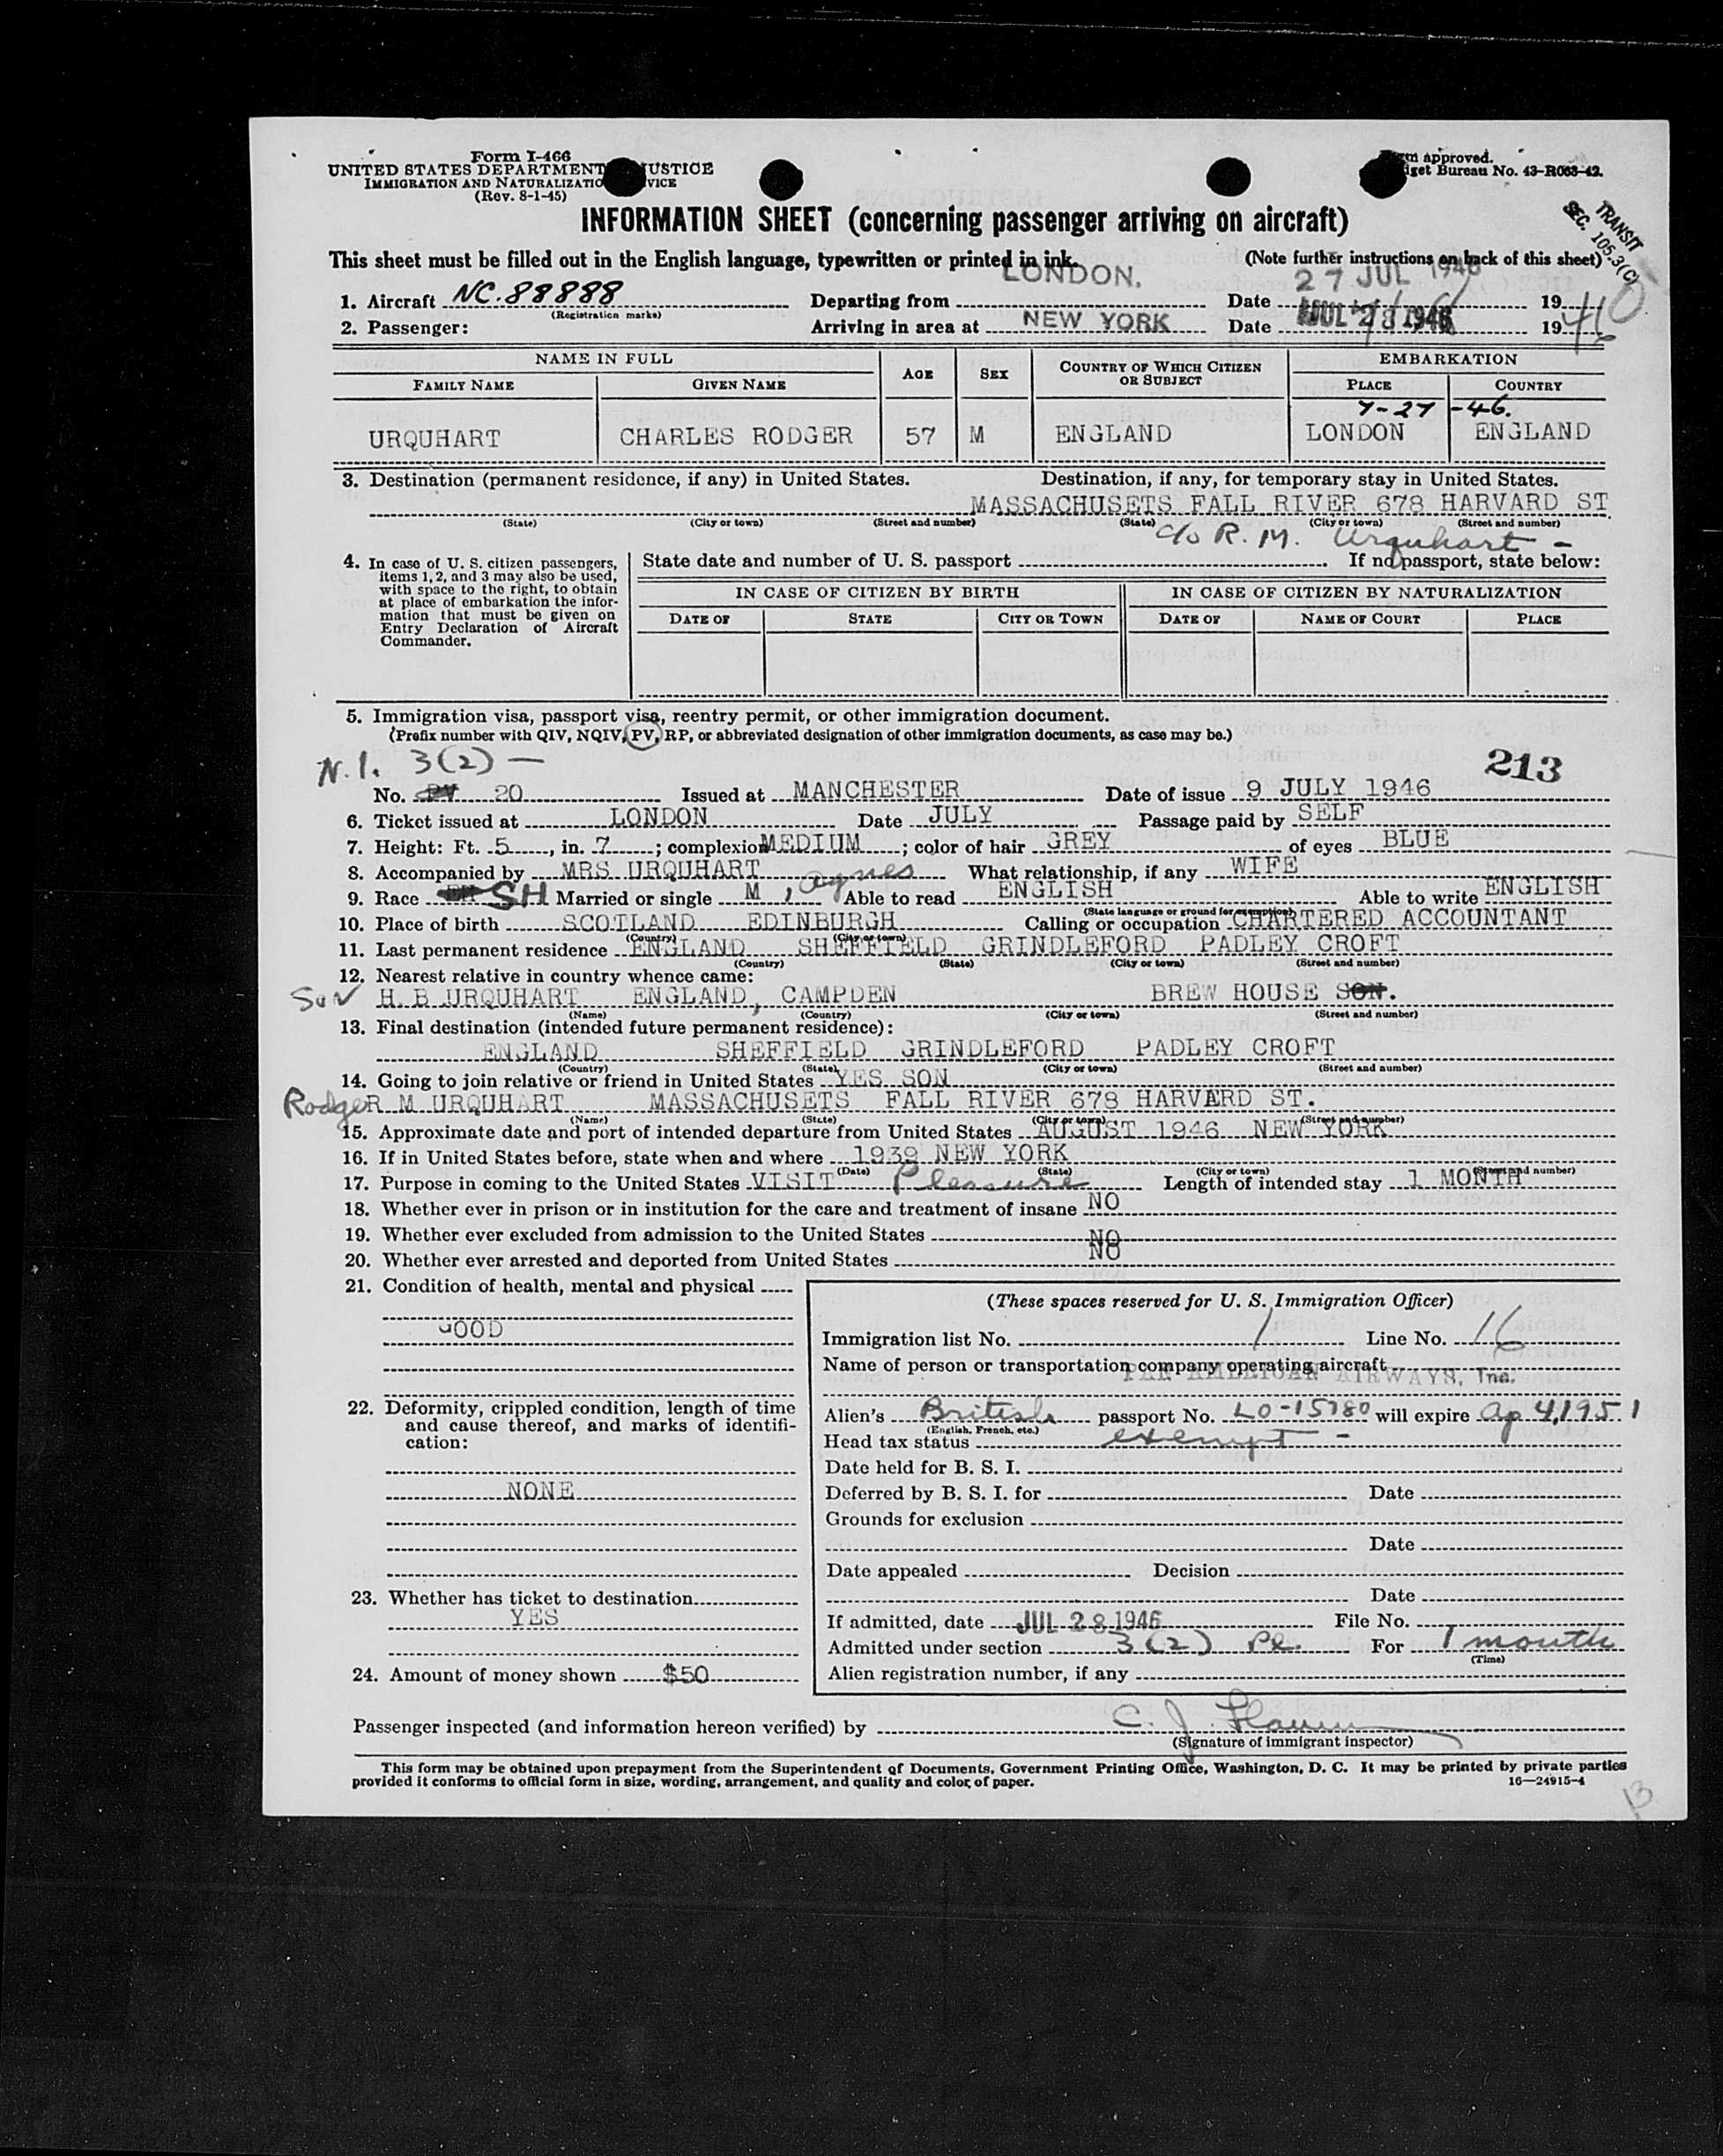 Form I-466
UNITED STATES DEPARTMENT JUSTICE
IMMIGRATION AND NATURALIZATIO VICE
(Rev. 8-1-45)
approved.
get Bureau No. 43-R063-42.
TRANSIT
SEC. 105.3(C)
INFORMATION SHEET (concerning passenger arriving on aircraft)
This sheet must be filled out in the English language, typewritten or printed in ink. (Note further instructions on back of this sheet)
1. Aircraft NC.88888 Departing from LONDON. Date 27 JUL 1946 19
(Registration marks)
2. Passenger: Arriving in area at NEW YORK Date JUL 28 1946 1946
NAME IN FULL AGE SEX COUNTRY OF WHICH CITIZEN OR SUBJECT EMBARKATION
FAMILY NAME GIVEN NAME PLACE COUNTRY
7-27-46.
URQUHART CHARLES RODGER 57 M ENGLAND LONDON ENGLAND
3. Destination (permanent residence, if any) in United States. Destination, if any, for temporary stay in United States.
MASSACHUSETS FALL RIVER 678 HARVARD ST
(State) (City or town) (Street and number) (State) (City or town) (Street and number)
c/o R. M. Urquhart -
4. In case of U. S. citizen passengers, items 1, 2, and 3 may also be used, with space to the right, to obtain at place of embarkation the information that must be given on Entry Declaration of Aircraft Commander.
State date and number of U. S. passport If no passport, state below:
IN CASE OF CITIZEN BY BIRTH IN CASE OF CITIZEN BY NATURALIZATION
DATE OF STATE CITY OR TOWN DATE OF NAME OF COURT PLACE
5. Immigration visa, passport visa, reentry permit, or other immigration document.
(Prefix number with QIV, NQIV, PV, RP, or abbreviated designation of other immigration documents, as case may be.)
N.I. 3(2) — 213
No. PV 20 Issued at MANCHESTER Date of issue 9 JULY 1946
6. Ticket issued at LONDON Date JULY Passage paid by SELF
7. Height: Ft. 5, in. 7; complexion MEDIUM; color of hair GREY of eyes BLUE
8. Accompanied by MRS URQUHART, Agnes What relationship, if any WIFE
9. Race SH Married or single M Able to read ENGLISH Able to write ENGLISH
(State language or ground for exemption)
10. Place of birth SCOTLAND EDINBURGH Calling or occupation CHARTERED ACCOUNTANT
(Country) (City or town)
11. Last permanent residence ENGLAND SHEFFIELD GRINDLEFORD PADLEY CROFT
(Country) (State) (City or town) (Street and number)
12. Nearest relative in country whence came:
Son H B URQUHART ENGLAND, CAMPDEN BREW HOUSE SON.
(Name) (Country) (City or town) (Street and number)
13. Final destination (intended future permanent residence):
ENGLAND SHEFFIELD GRINDLEFORD PADLEY CROFT
(Country) (State) (City or town) (Street and number)
14. Going to join relative or friend in United States YES SON
Rodger R M URQUHART MASSACHUSETS FALL RIVER 678 HARVARD ST.
(Name) (State) (City or town) (Street and number)
15. Approximate date and port of intended departure from United States AUGUST 1946 NEW YORK
16. If in United States before, state when and where 1939 NEW YORK
(Date) (State) (City or town) (Street and number)
17. Purpose in coming to the United States VISIT Pleasure Length of intended stay 1 MONTH
18. Whether ever in prison or in institution for the care and treatment of insane NO
19. Whether ever excluded from admission to the United States NO
20. Whether ever arrested and deported from United States NO
21. Condition of health, mental and physical
GOOD
22. Deformity, crippled condition, length of time and cause thereof, and marks of identification:
NONE
23. Whether has ticket to destination
YES
24. Amount of money shown $50
(These spaces reserved for U. S. Immigration Officer)
Immigration list No. 1 Line No. 16
Name of person or transportation company operating aircraft
PAN AMERICAN AIRWAYS, Inc.
Alien's British passport No. LO-15780 will expire Ap 4, 1951
(English, French, etc.)
Head tax status exempt -
Date held for B. S. I.
Deferred by B. S. I. for Date
Grounds for exclusion
Date
Date appealed Decision
Date
If admitted, date JUL 28 1946 File No.
Admitted under section 3(2) Pl. For 1 month
(Time)
Alien registration number, if any
Passenger inspected (and information hereon verified) by C. J.
(Signature of immigrant inspector)
This form may be obtained upon prepayment from the Superintendent of Documents, Government Printing Office, Washington, D. C. It may be printed by private parties
provided it conforms to official form in size, wording, arrangement, and quality and color of paper. 16—24915-4
13